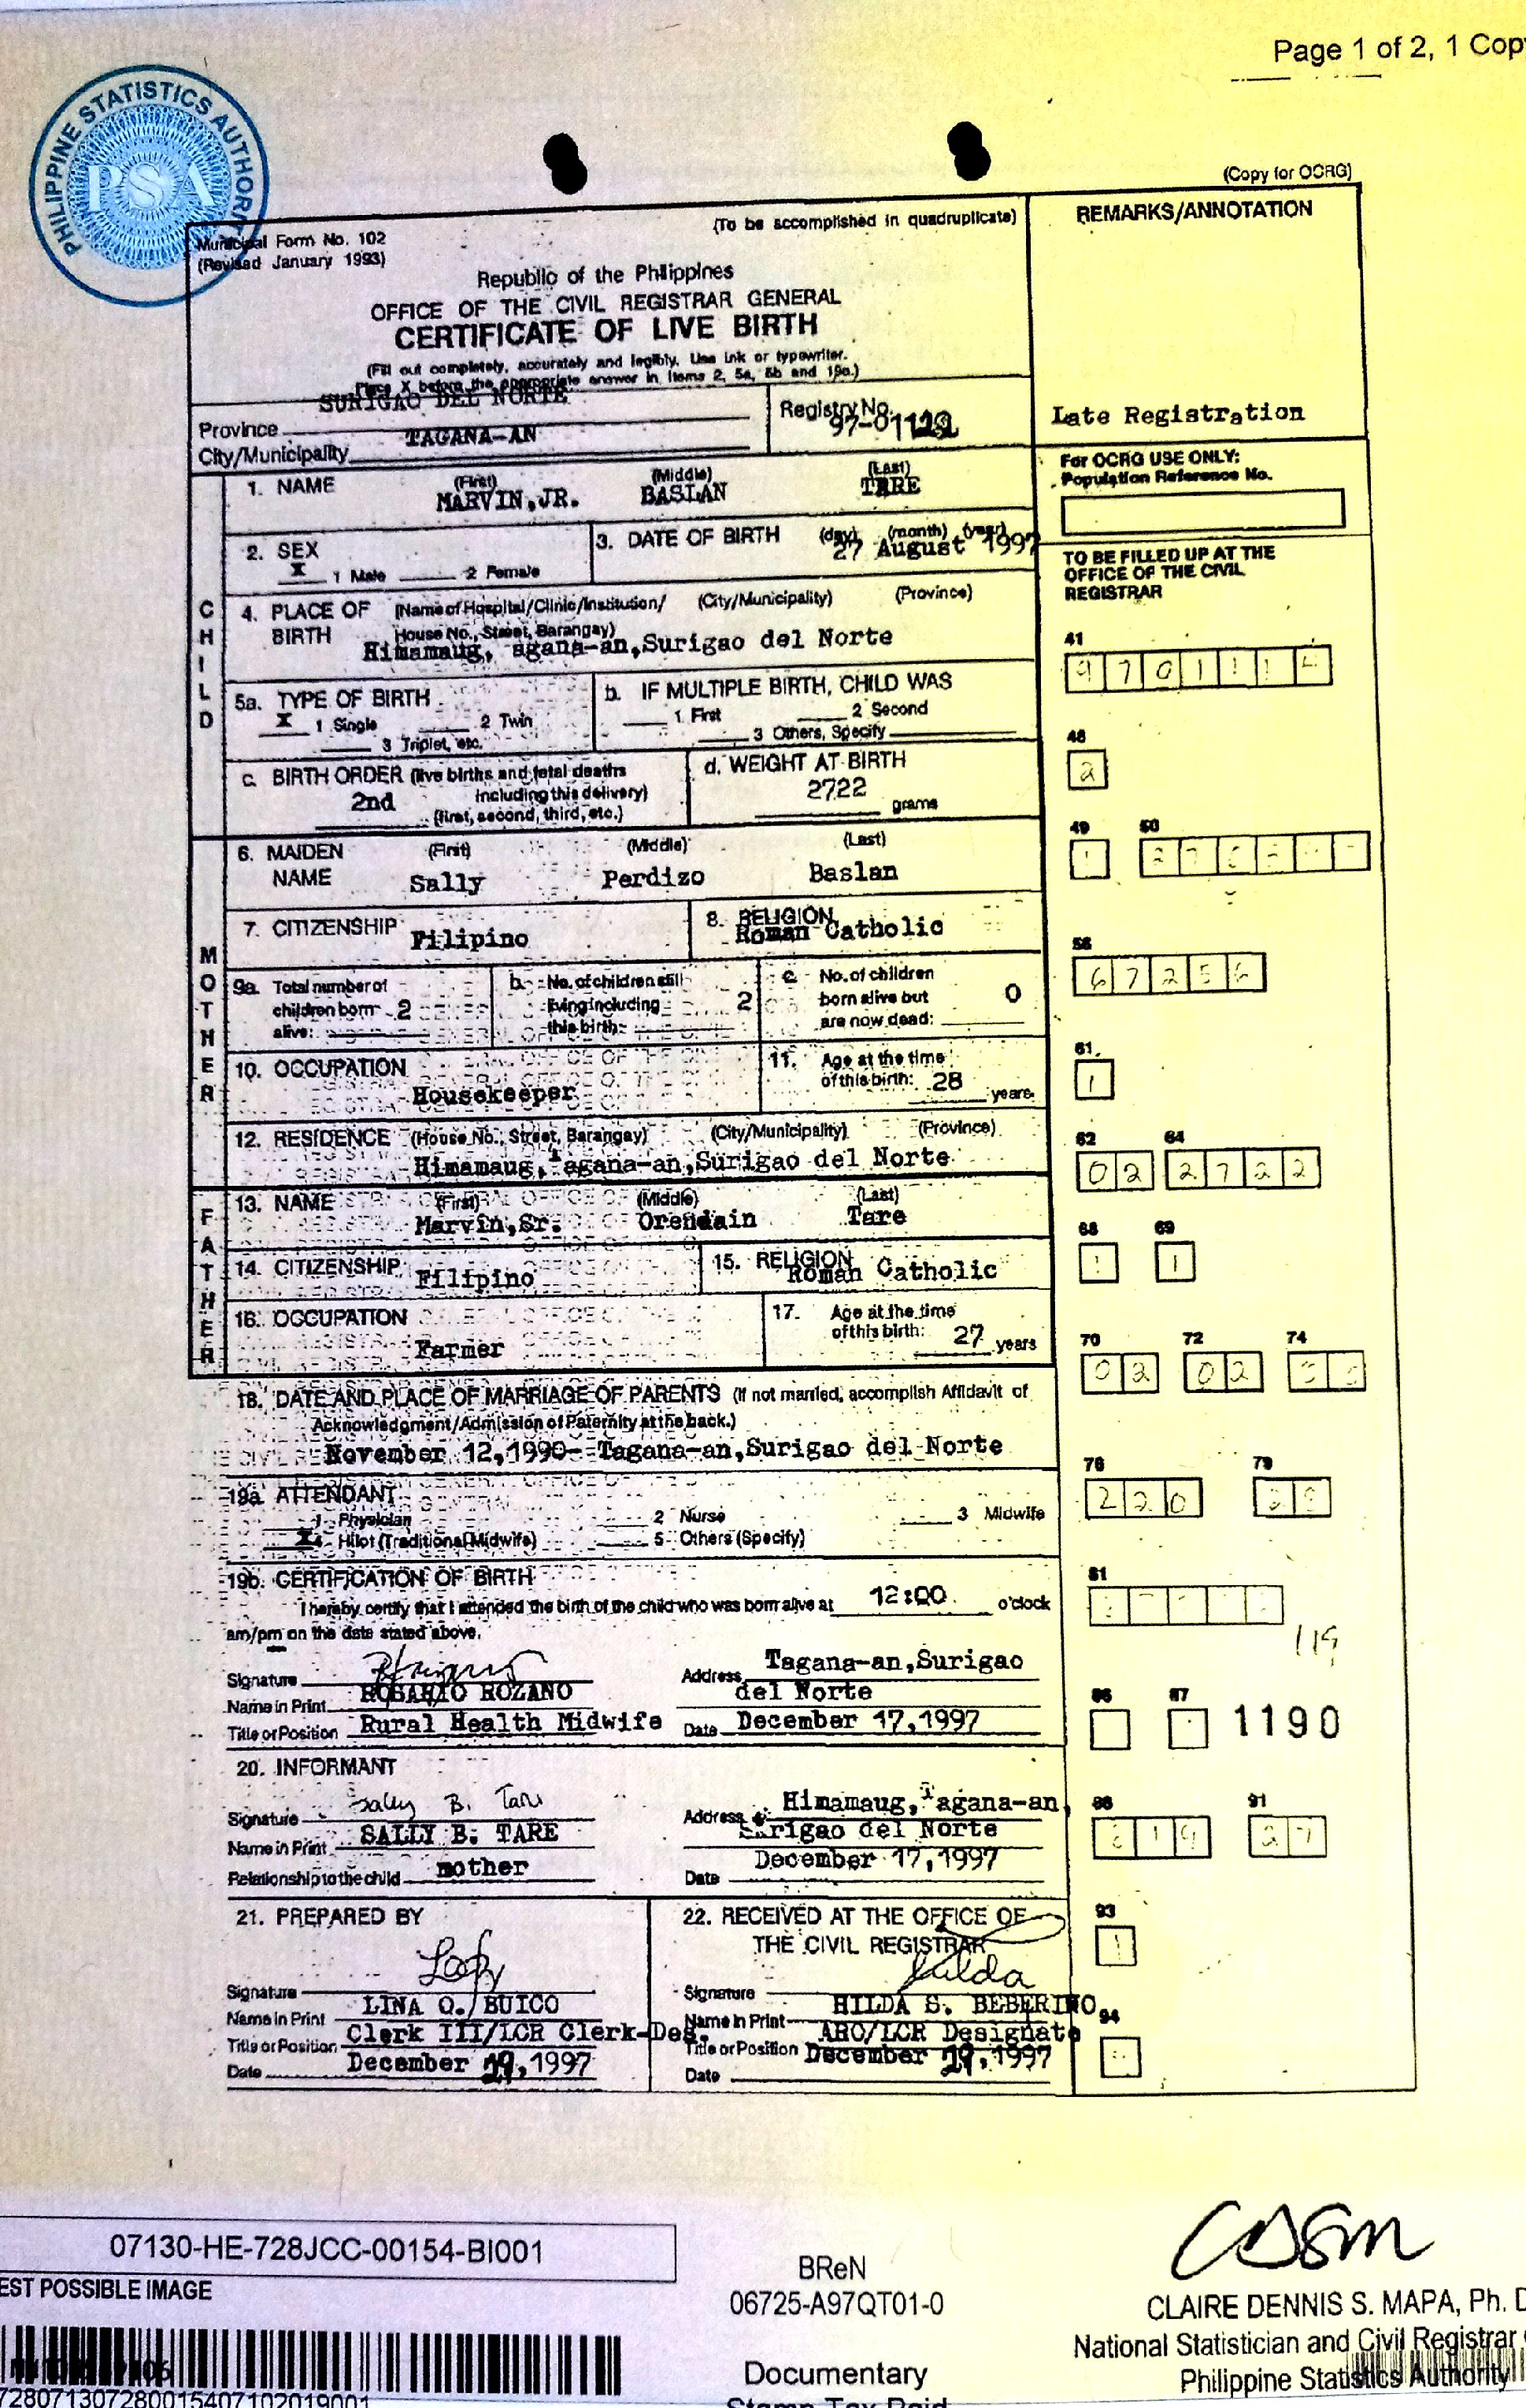 Page 1 of 2, 1 Copy
PHILIPPINE STATISTICS AUTHORITY
PSA
(Copy for OCRG)
Municipal Form No. 102
(Revised January 1993)
(To be accomplished in quadruplicate)
REMARKS/ANNOTATION
Republic of the Philippines
OFFICE OF THE CIVIL REGISTRAR GENERAL
CERTIFICATE OF LIVE BIRTH
(Fill out completely, accurately and legibly. Use ink or typewriter.
Place X before the appropriate answer in Items 2, 5a, 5b and 19a.)
Province SURIGAO DEL NORTE
City/Municipality TAGANA-AN
Registry No.
Late Registration
For OCRG USE ONLY:
Population Reference No.
1. NAME (First) (Middle) (Last)
MARVIN,JR. BASLAN TARE
2. SEX
X 1 Male 2 Female
3. DATE OF BIRTH (day) (month) (year)
27 August 1997
TO BE FILLED UP AT THE
OFFICE OF THE CIVIL
REGISTRAR
CHILD
4. PLACE OF BIRTH (Name of Hospital/Clinic/Institution/ (City/Municipality) (Province)
House No., Street, Barangay)
Himamaug, agana-an,Surigao del Norte
41
5a. TYPE OF BIRTH
X 1 Single 2 Twin
3 Triplet, etc.
b. IF MULTIPLE BIRTH, CHILD WAS
1 First 2 Second
3 Others, Specify
48
2
c. BIRTH ORDER (live births and fetal deaths
including this delivery)
2nd
(first, second, third, etc.)
d. WEIGHT AT BIRTH
2722 grams
49 50
1
MOTHER
6. MAIDEN NAME (First) (Middle) (Last)
Sally Perdizo Baslan
7. CITIZENSHIP Filipino
8. RELIGION
Roman Catholic
56
67256
9a. Total number of
children born 2
alive:
b. No. of children still
living including 2
this birth:
c. No. of children
born alive but 0
are now dead:
10. OCCUPATION
Housekeeper
11. Age at the time
of this birth: 28 years
61
1
12. RESIDENCE (House No., Street, Barangay) (City/Municipality) (Province)
Himamaug, Tagana-an,Surigao del Norte
62 64
02 2722
FATHER
13. NAME (First) (Middle) (Last)
Marvin,Sr. Orendain Tare
68 69
1 1
14. CITIZENSHIP Filipino
15. RELIGION
Roman Catholic
16. OCCUPATION
Farmer
17. Age at the time
of this birth: 27 years
70 72 74
02 02
18. DATE AND PLACE OF MARRIAGE OF PARENTS (If not married, accomplish Affidavit of
Acknowledgment/Admission of Paternity at the back.)
November 12,1990- Tagana-an,Surigao del Norte
76 79
220
19a. ATTENDANT
1 Physician 2 Nurse 3 Midwife
X 4 Hilot (Traditional Midwife) 5 Others (Specify)
19b. CERTIFICATION OF BIRTH
I hereby certify that I attended the birth of the child who was born alive at 12:00 o'clock
am/pm on the date stated above.
81
119
Signature
Name in Print ROSARIO ROZANO
Title or Position Rural Health Midwife
Address Tagana-an,Surigao
del Norte
Date December 17,1997
86 87
1190
20. INFORMANT
Signature Sally B. Tare
Name in Print SALLY B. TARE
Relationship to the child mother
Address Himamaug, Tagana-an,
Surigao del Norte
December 17,1997
Date
88 91
219 27
21. PREPARED BY
Signature
Name in Print LINA O. BUICO
Title or Position Clerk III/LCR Clerk-Des.
Date December 19,1997
22. RECEIVED AT THE OFFICE OF
THE CIVIL REGISTRAR
Signature Hilda
Name in Print HILDA S. BEBERINO
Title or Position ARO/LCR Designate
December 19,1997
Date
93
1
94
07130-HE-728JCC-00154-BI001
EST POSSIBLE IMAGE
BReN
06725-A97QT01-0
Documentary
Stamp Tax Paid
CLAIRE DENNIS S. MAPA, Ph. D
National Statistician and Civil Registrar
Philippine Statistics Authority